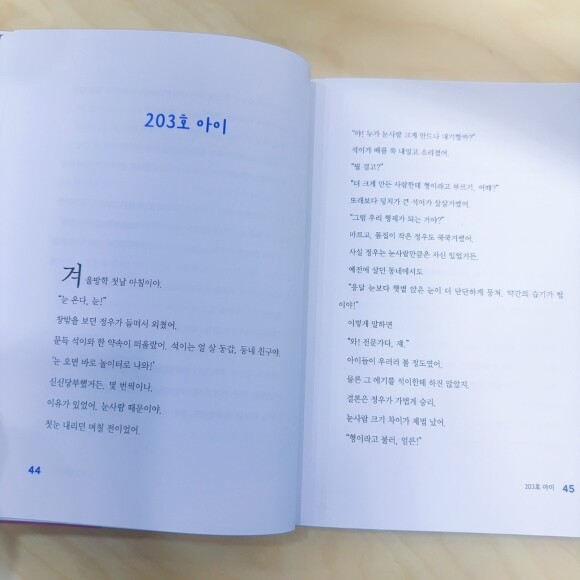 203호 아이
겨울방학 첫날 아침이야.
"눈 온다, 눈!"
창밖을 보던 정우가 들떠서 외쳤어.
문득 석이와 한 약속이 떠올랐어. 석이는 열 살 동갑, 동네 친구야.
'눈 오면 바로 놀이터로 나와!'
신신당부했거든, 몇 번씩이나.
이유가 있었어. 눈사람 때문이야.
첫눈 내리던 며칠 전이었어.
44
"야! 누가 눈사람 크게 만드나 내기할까?"
석이가 배를 쭉 내밀고 소리쳤어.
"뭘 걸고?"
"더 크게 만든 사람한테 형이라고 부르기, 어때?"
또래보다 덩치가 큰 석이가 살살거렸어.
"그럼 우리 형제가 되는 거야?"
마르고, 몸집이 작은 정우도 쿡쿡거렸어.
사실 정우는 눈사람만큼은 자신 있었거든.
예전에 살던 동네에서도
"응달 눈보다 햇볕 앉은 눈이 더 단단하게 뭉쳐. 약간의 습기가 힘
이야!"
이렇게 말하면
"와! 전문가다, 쟤."
아이들이 우러러 볼 정도였어.
물론 그 얘기를 석이한테 하진 않았지.
결론은 정우가 가볍게 승리,
눈사람 크기 차이가 제법 났어.
"형이라고 불러, 얼른!"
203호 아이 45